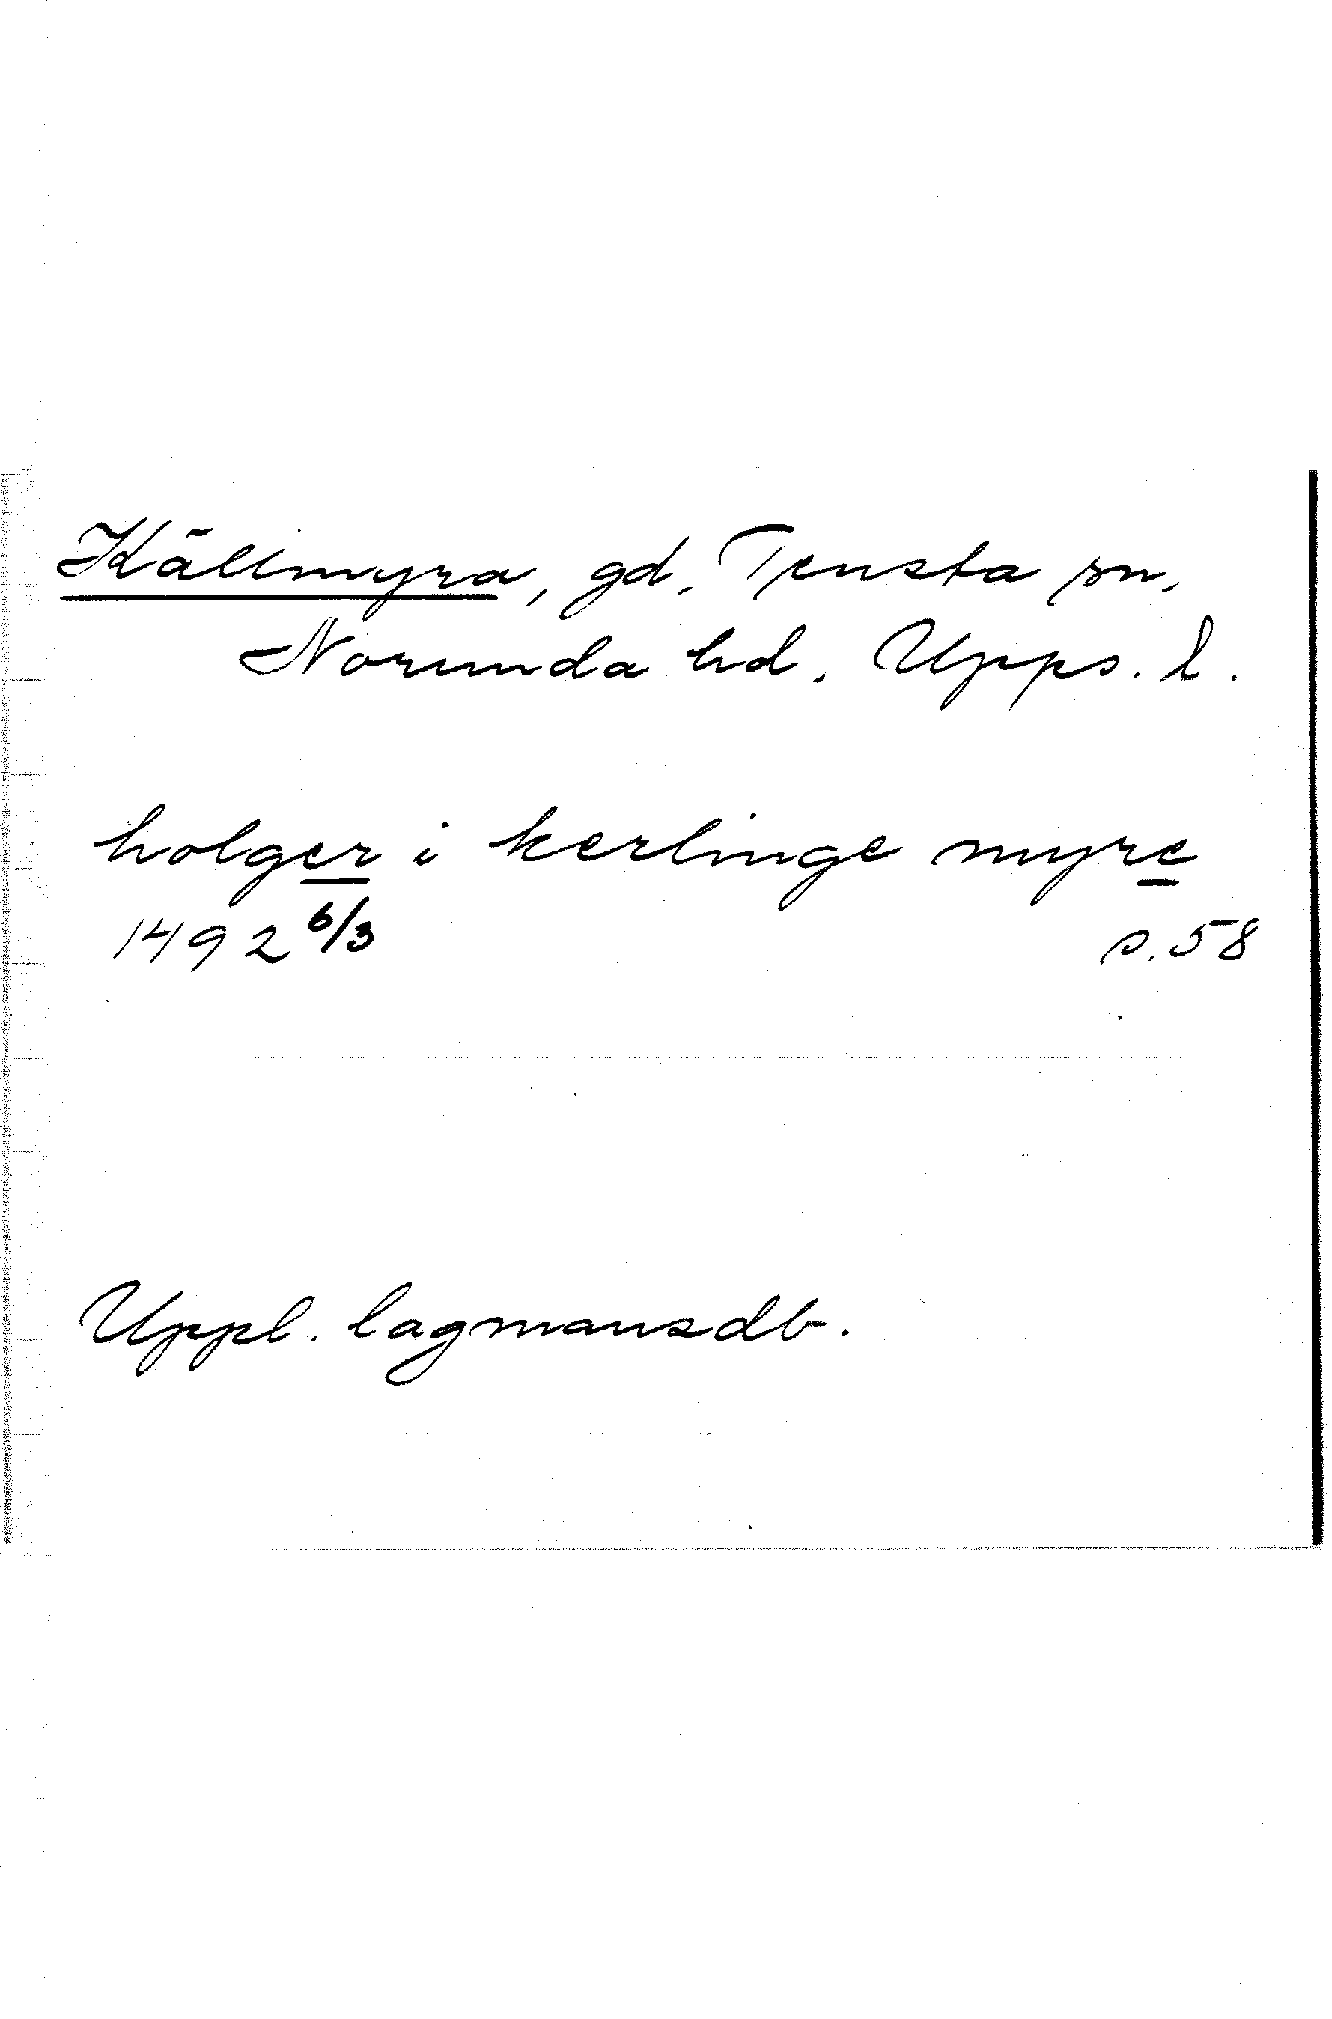 Källmyra, gd, Tensta sn,
Norunda hd, Upps. l.
holger i kerlinge myre
1492 6/3 s. 58
Uppl. lagmansdb.